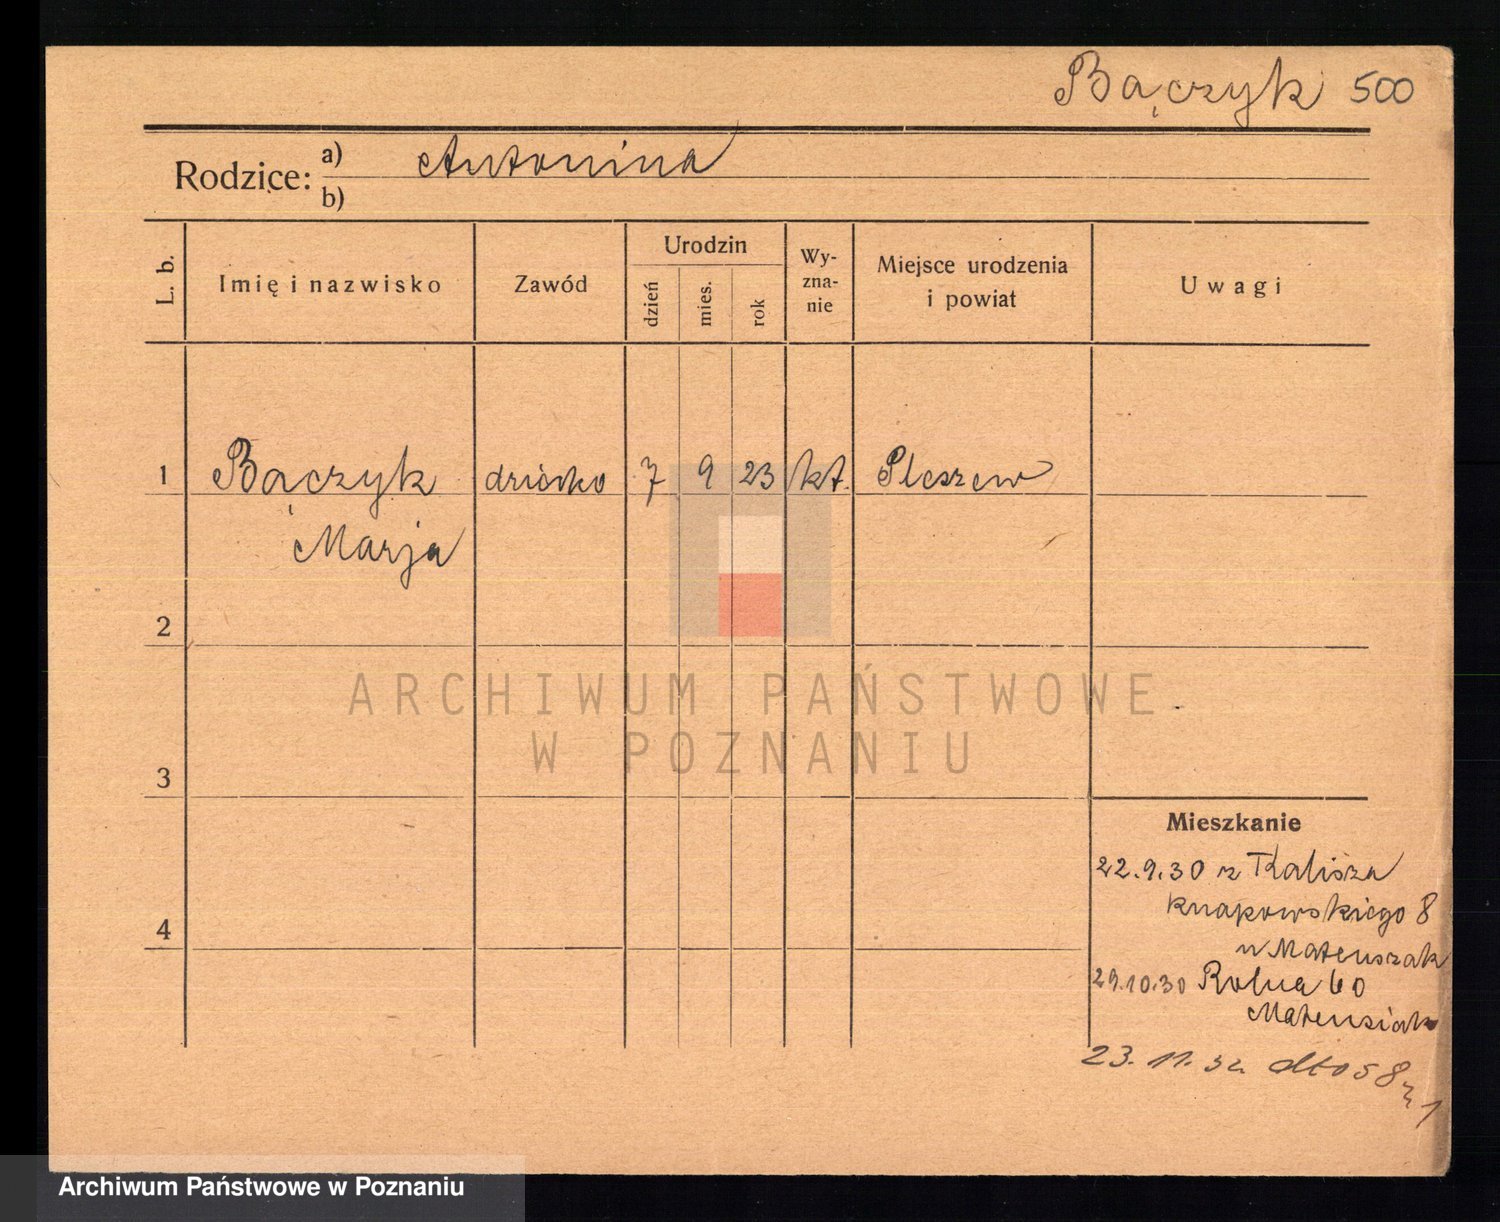 Bączyk 500
Rodzice: a) Antonina
b)
L. b.
Imię i nazwisko
Zawód
Urodzin
dzień
mies.
rok
Wy-
zna-
nie
Miejsce urodzenia
i powiat
Uwagi
1 Bączyk dziecko 7 9 23 kt. Pleszew
Marja
2
ARCHIWUM PAŃSTWOWE
W POZNANIU
3
4
Mieszkanie
22.9.30 z Kalisza
Knapowskiego 8
u Mateuszak
29.10.30 Rolna 60
Mateusiak
23. 11. 32 dtto 58
Archiwum Państwowe w Poznaniu